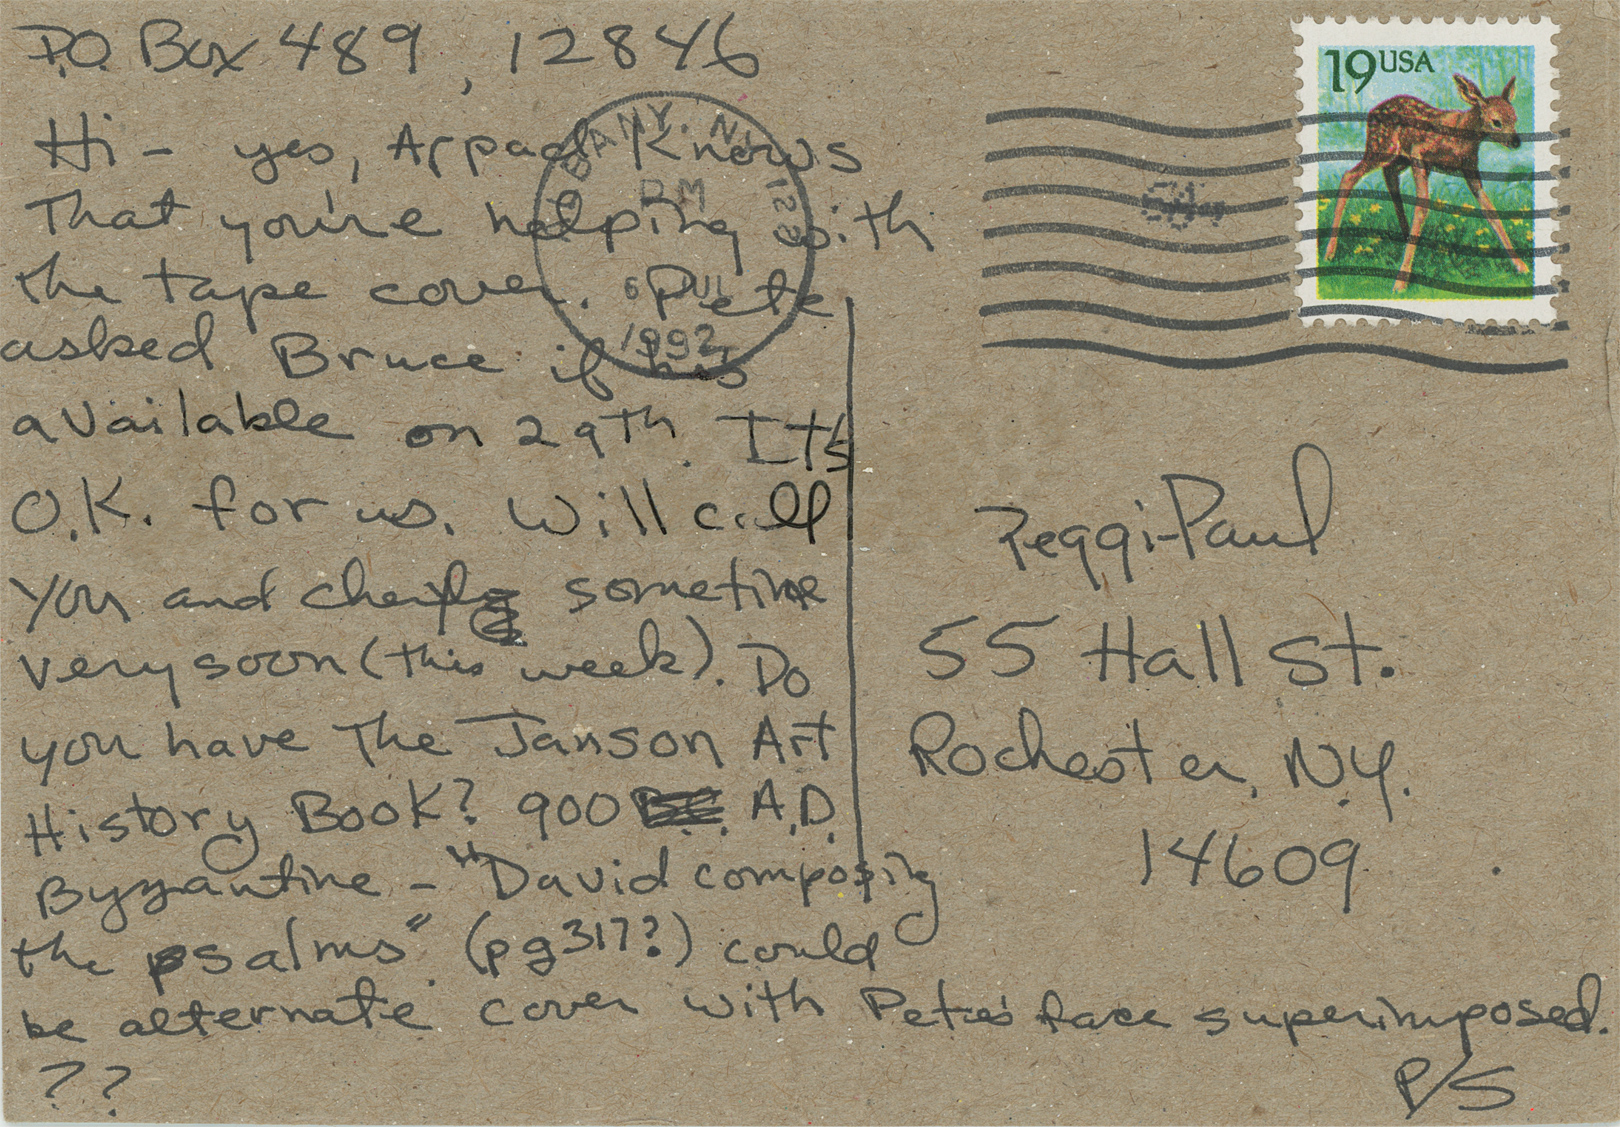 P.O. Box 489, 12846
Hi - yes, Arpad Knows
That you're helping with
the tape cover. Pete
asked Bruce if his
available on 29th. It's
O.K. for us. Will call
you and sometime
very soon (this week). Do
you have The Janson Art
History Book? 900 A.D.
Byzantine - "David composing
the psalms" (pg 317?) could
be alternate cover with Pete's face superimposed.
??
P/S
19 USA
ALBANY, NY 122
PM
6 JUL
1992
Peggi-Paul
55 Hall St.
Rochester, N.Y.
14609